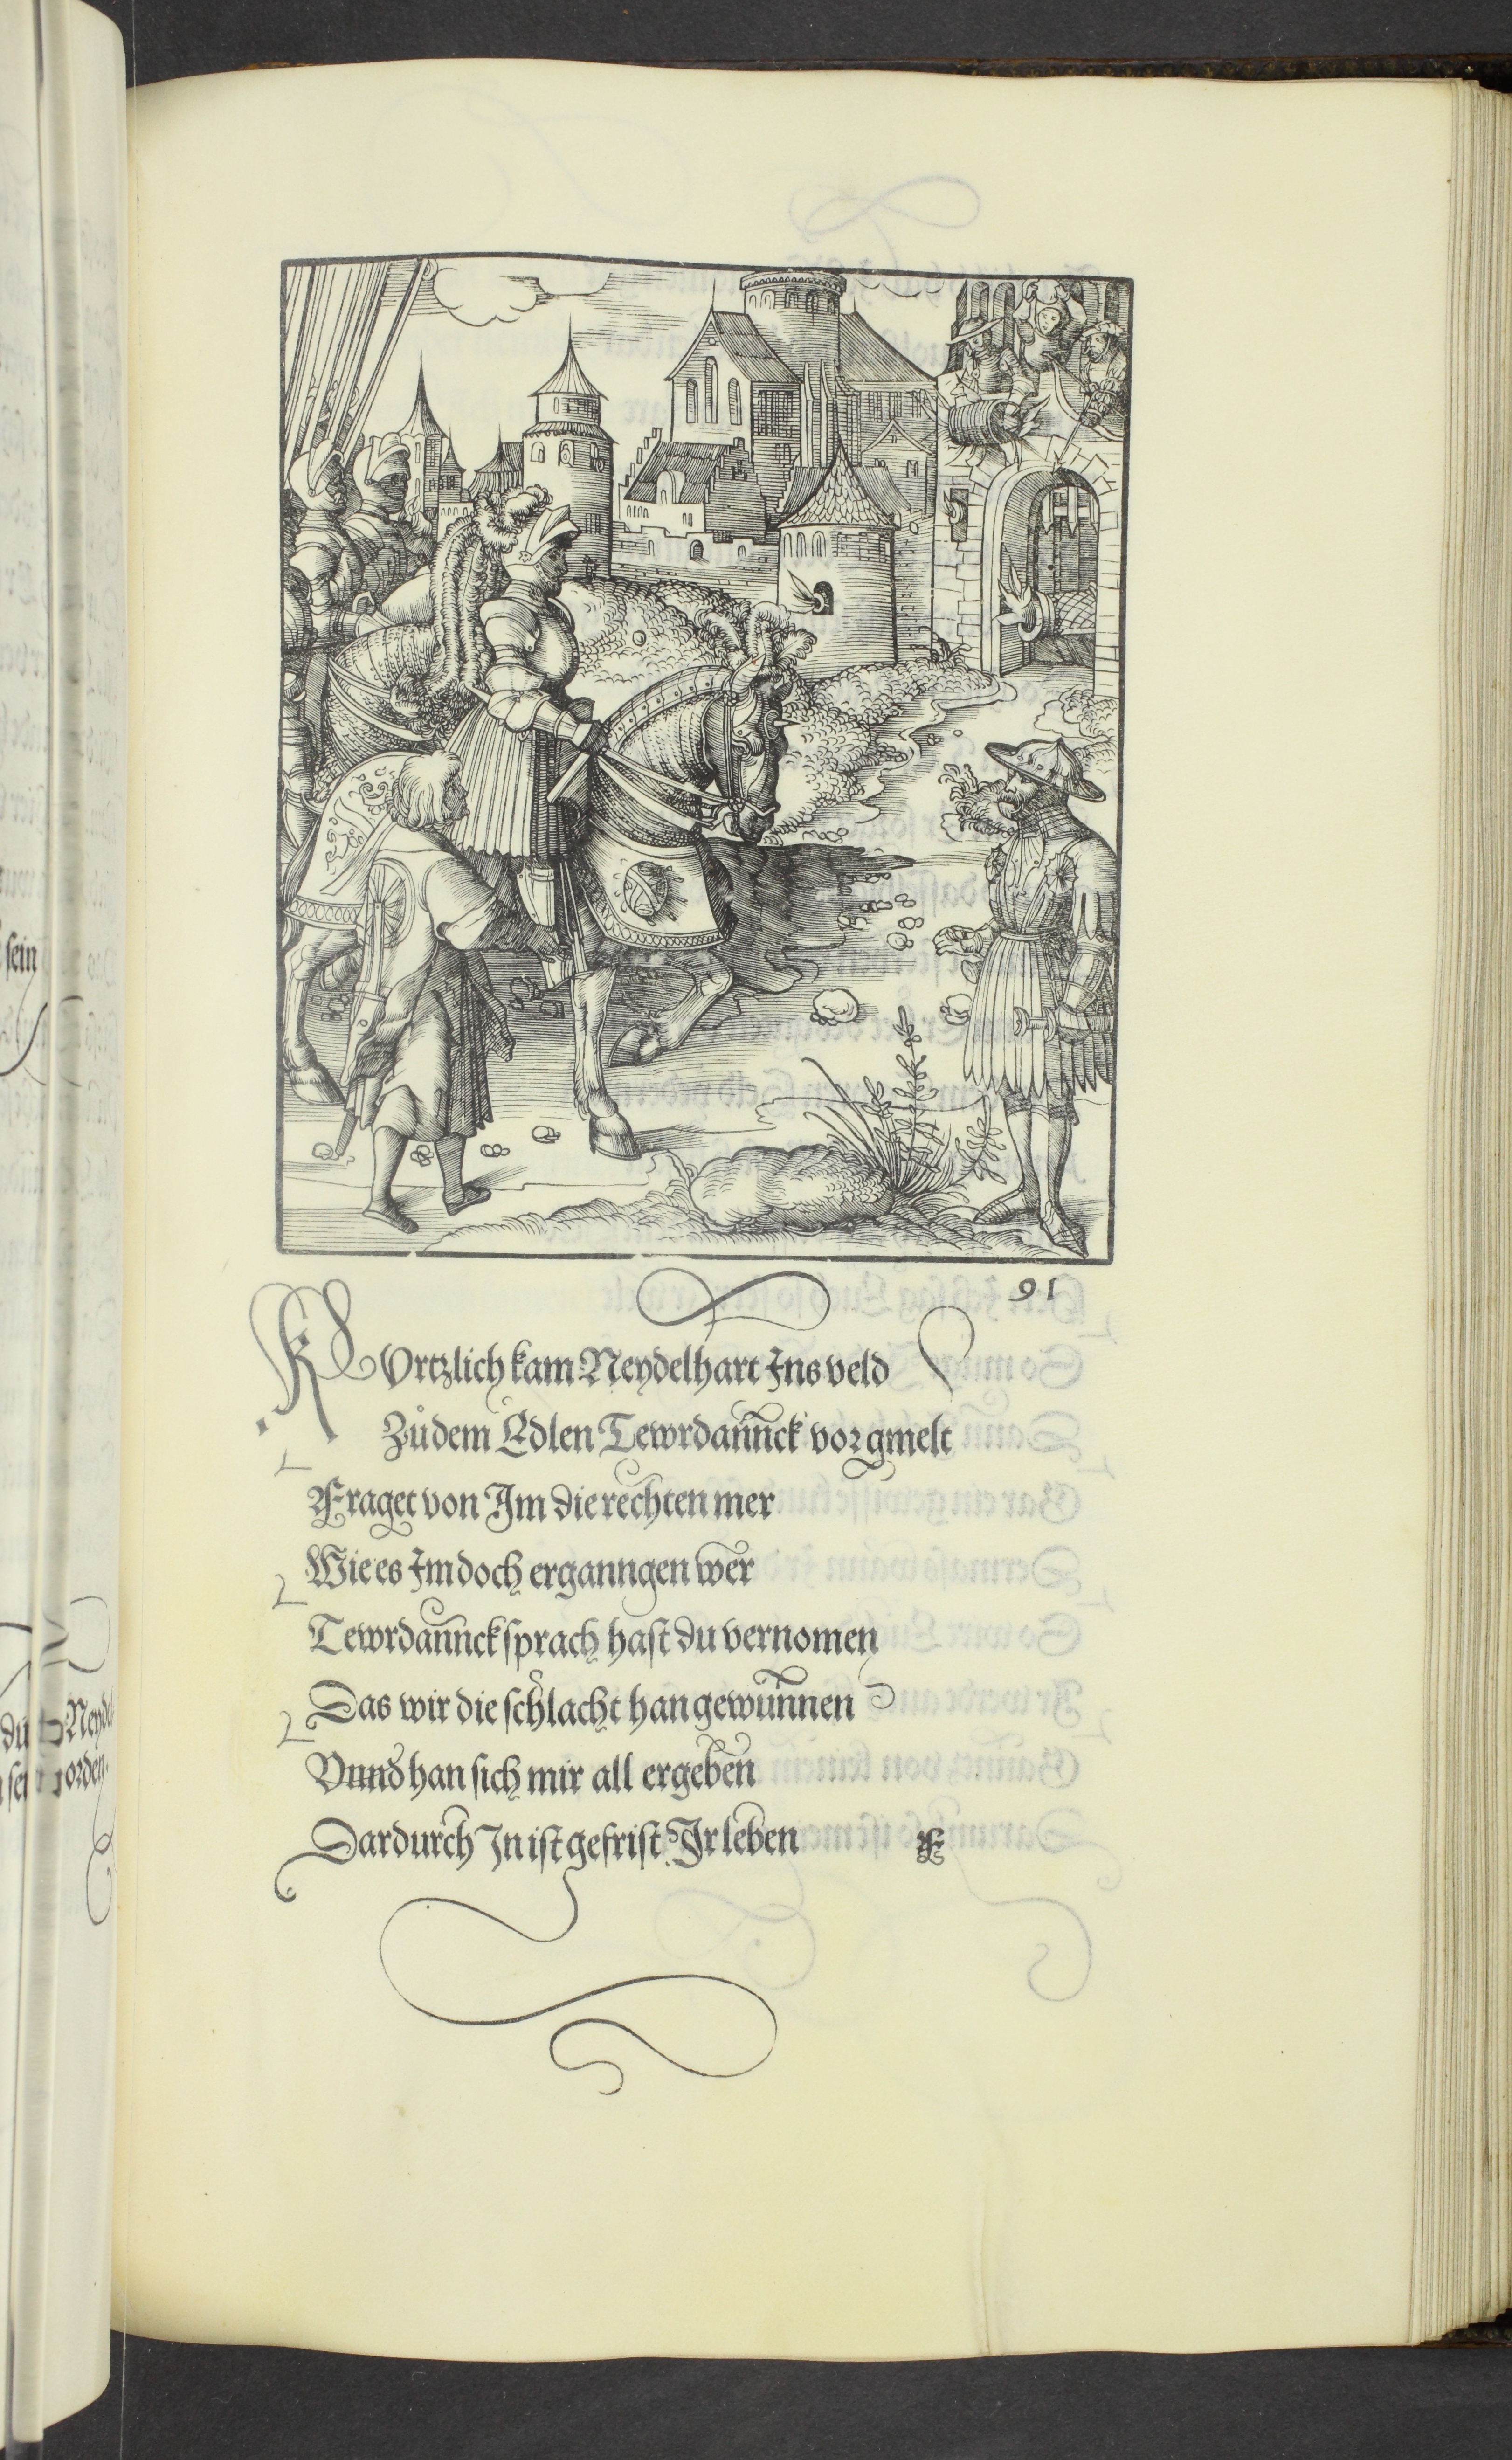 sein
91
KUrtzlich kam Neydelhart Ins veld
Zů dem Edlen Tewrdannck vorgmelt
Fraget von Im die rechten mer
Wie es Im doch erganngen wer
Tewrdannck sprach hast du vernomen
Das wir die schlacht han gewunnen
Vnnd han sich mir all ergeben
Dardurch In ist gefrist Ir leben
F